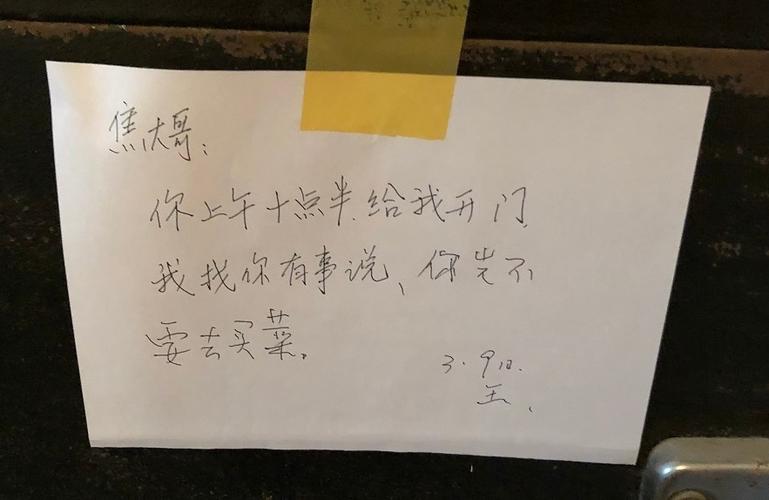 焦大哥：
你上午十点半给我开门
我找你有事说、你先不
要去买菜。
3.9日.
王、